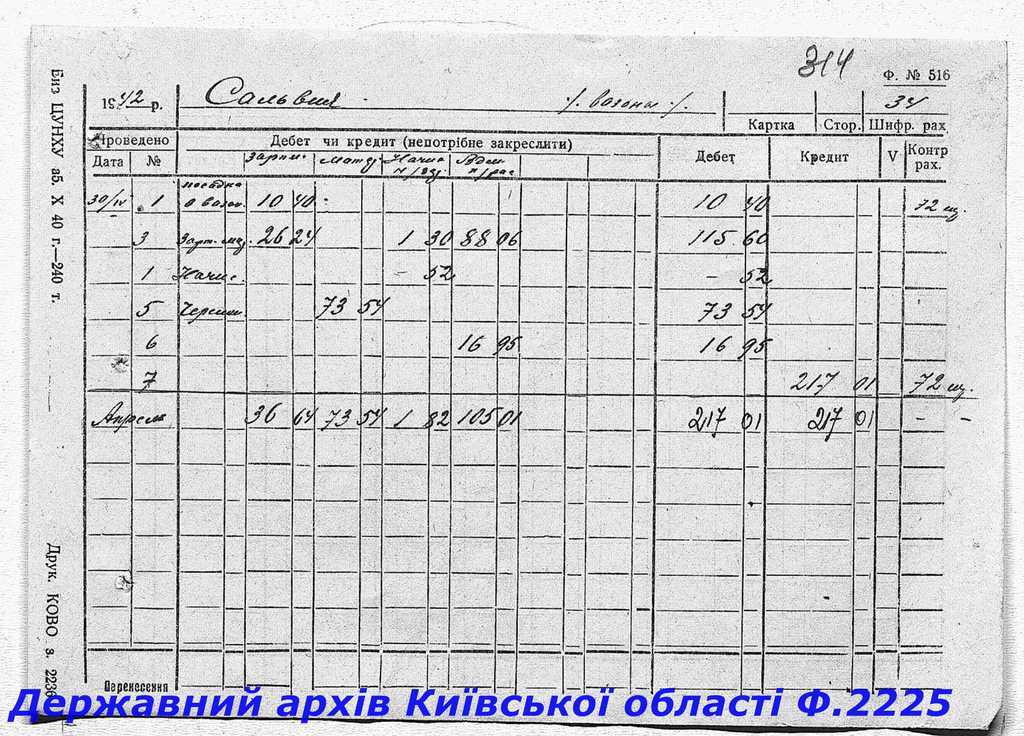 314
Ф. № 516
1942 р. Сальвия ·/. вазоны ·/. 34
Картка Стор. Шифр. рах
Проведено Дебет чи кредит (непотрібне закреслити) Дебет Кредит V Контр рах.
Дата № зарпл. матер. Начис.
30/IV 1 посадка в вазон. 10 40 10 40 72
3 Зарт. 26 24 1 30 88 06 115 60
1 Начис. – 52 – 52
5 73 54 73 54
6 16 95 16 95
7 217 01 72
Апрель 36 64 73 54 1 82 105 01 217 01 217 01 – –
Перенесення
Биз ЦУНХУ зб. X 40 г.—240 т.
Друк. КОВО з. 2236
Державний архів Київської області Ф.2225